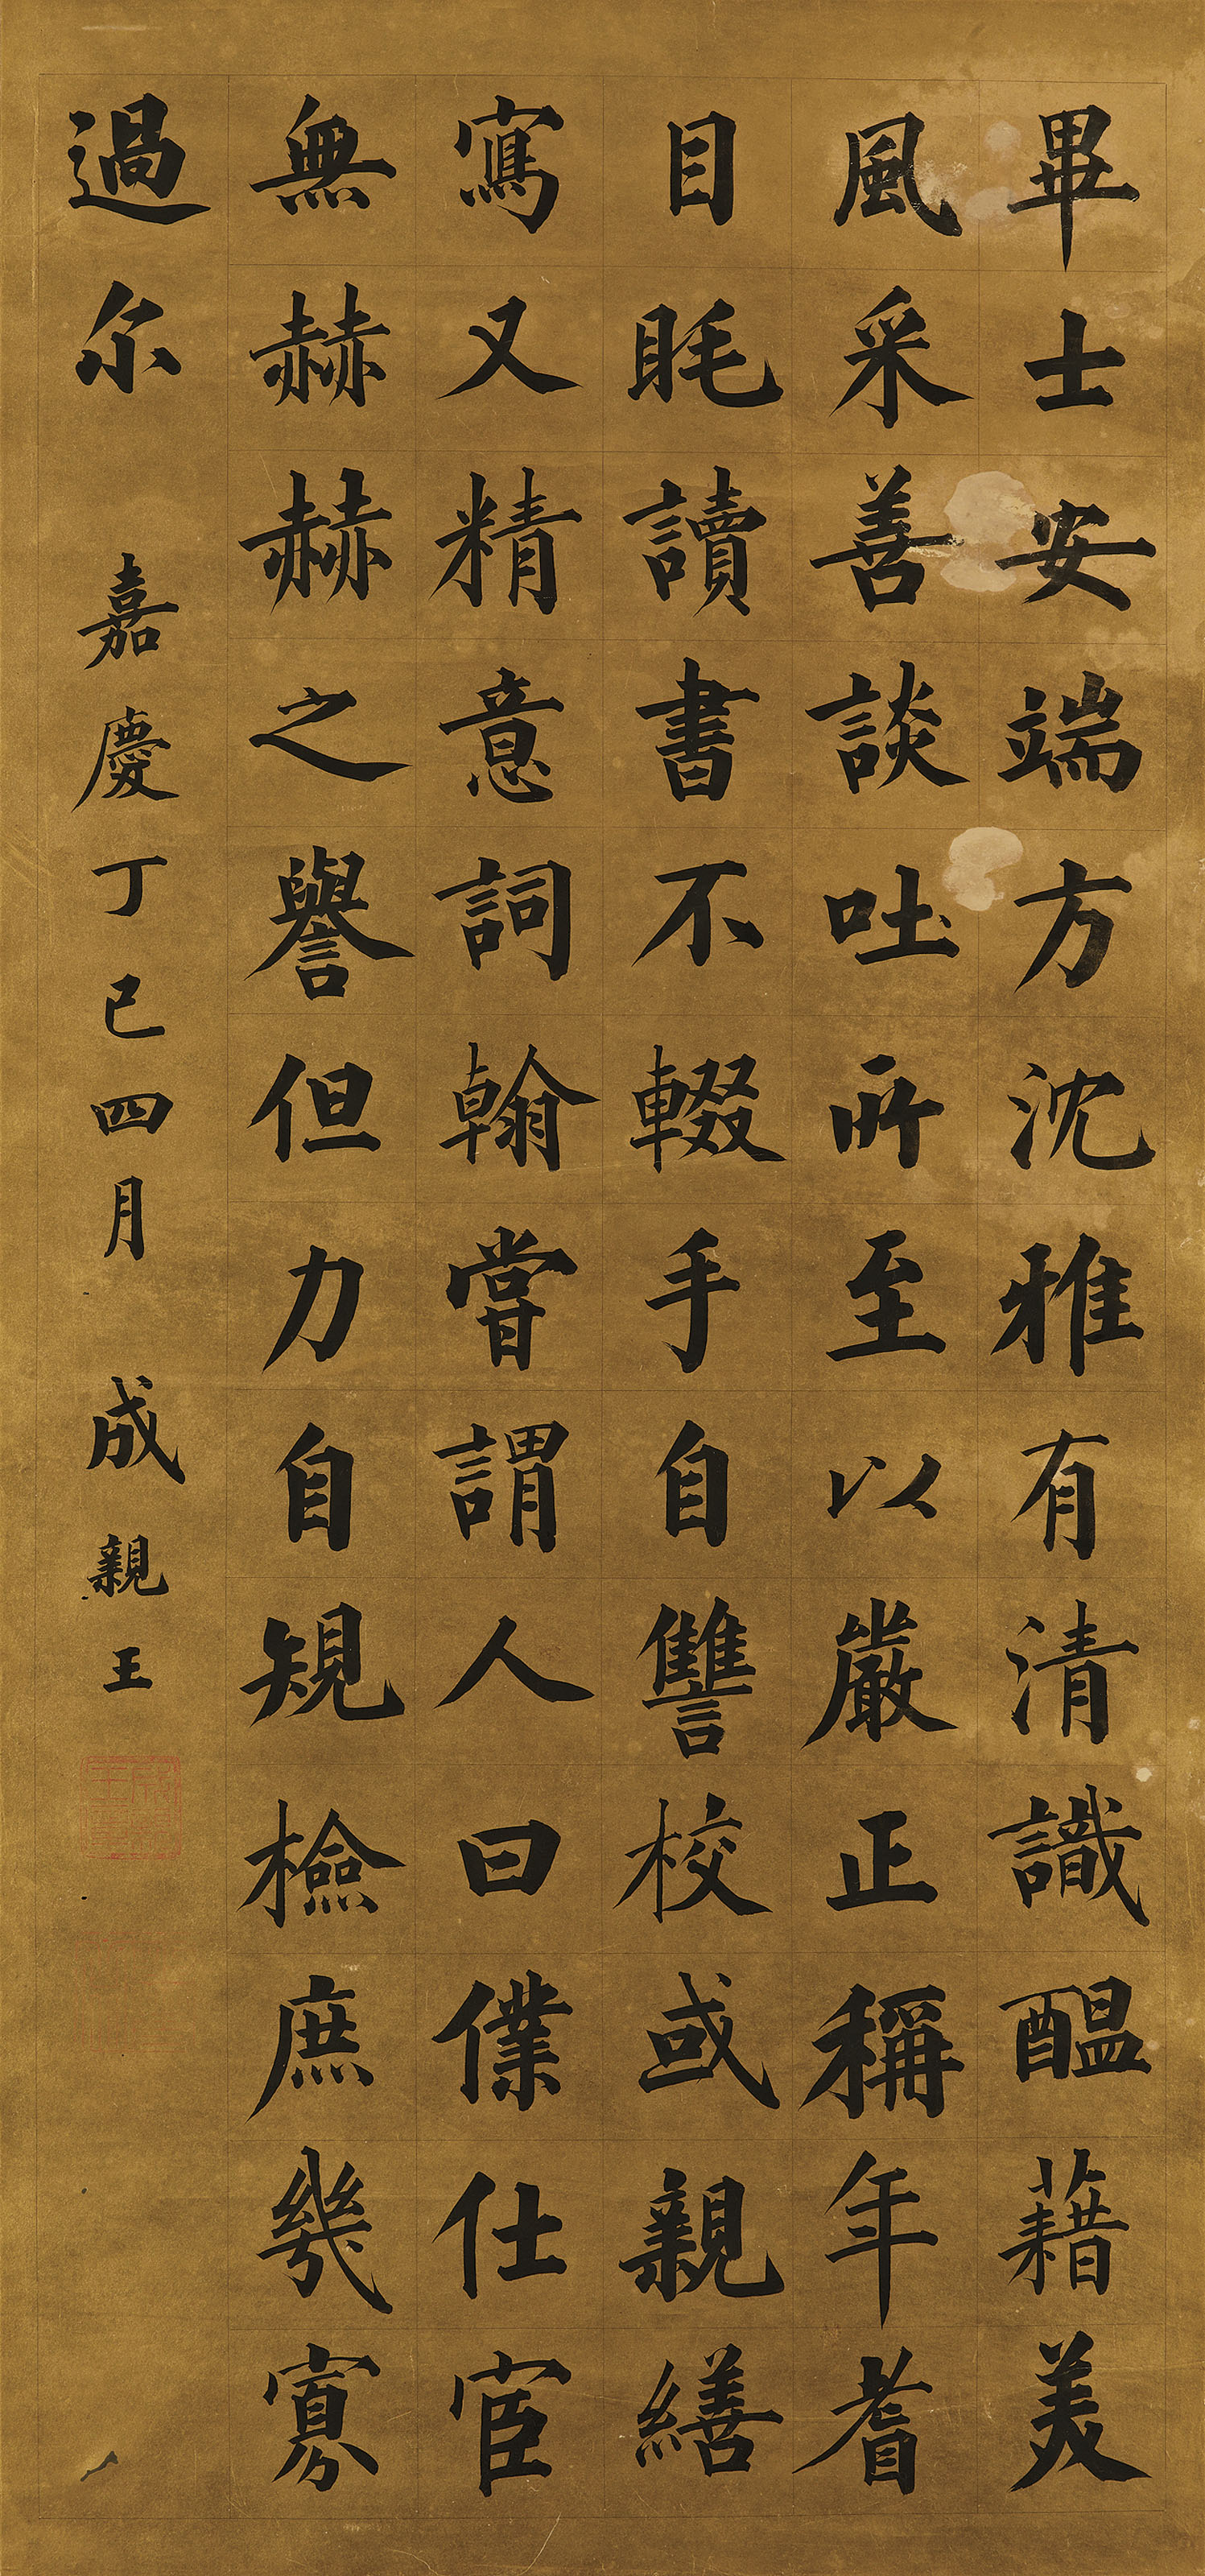 畢士安端方沈雅有清識醞藉美
風采善談吐所至以嚴正稱年耆
目眊讀書不輟手自讐校或親繕
寫又精意詞翰嘗謂人曰僕仕宦
無赫赫之譽但力自規檢庶幾寡
過尔 嘉慶丁巳四月 成親王